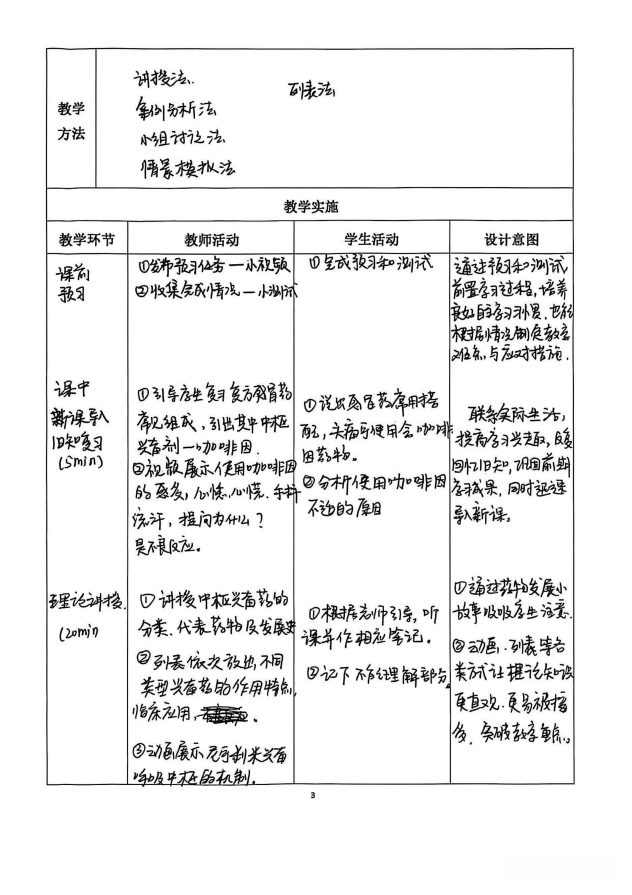 教学
方法
讲授法.
列表法
案例分析法
小组讨论法
情景模拟法
教学实施
教学环节
教师活动
学生活动
设计意图
课前
预习
①发布预习任务—小视频
②收集完成情况—小测试
①完成预习和测试
通过预习和测试
前置学习过程,培养
良好的学习习惯.也能
根据情况制定教学
任务,与应对措施.
课中
新课导入
旧知复习
(5min)
①引导学生复习复方感冒药
常见组成,引出其中中枢
兴奋剂—咖啡因.
②视频展示使用咖啡因
的感受,心悸.心慌.
流汗,提问为什么?
是不良反应。
①说出感冒药常用搭
配,头痛可使用含咖啡
因药物.
②分析使用咖啡因
不适的原因
联系实际生活,
提高学习兴趣,反复
回忆旧知,巩固前期
学习成果,同时迅速
导入新课.
理论讲授.
(20min)
①讲授中枢兴奋药的
分类、代表药物及发展史
②列表依次放出不同
类型兴奋药的作用特点,
临床应用,
③动画展示尼可刹米兴奋
呼吸中枢的机制.
①根据老师引导,听
课并作相应笔记.
②记下不能理解部分
①通过药物发展小
故事吸引学生注意.
②动画.列表等各
类方式让理论知识
更直观.更易被接
受,突破教学重点。
3